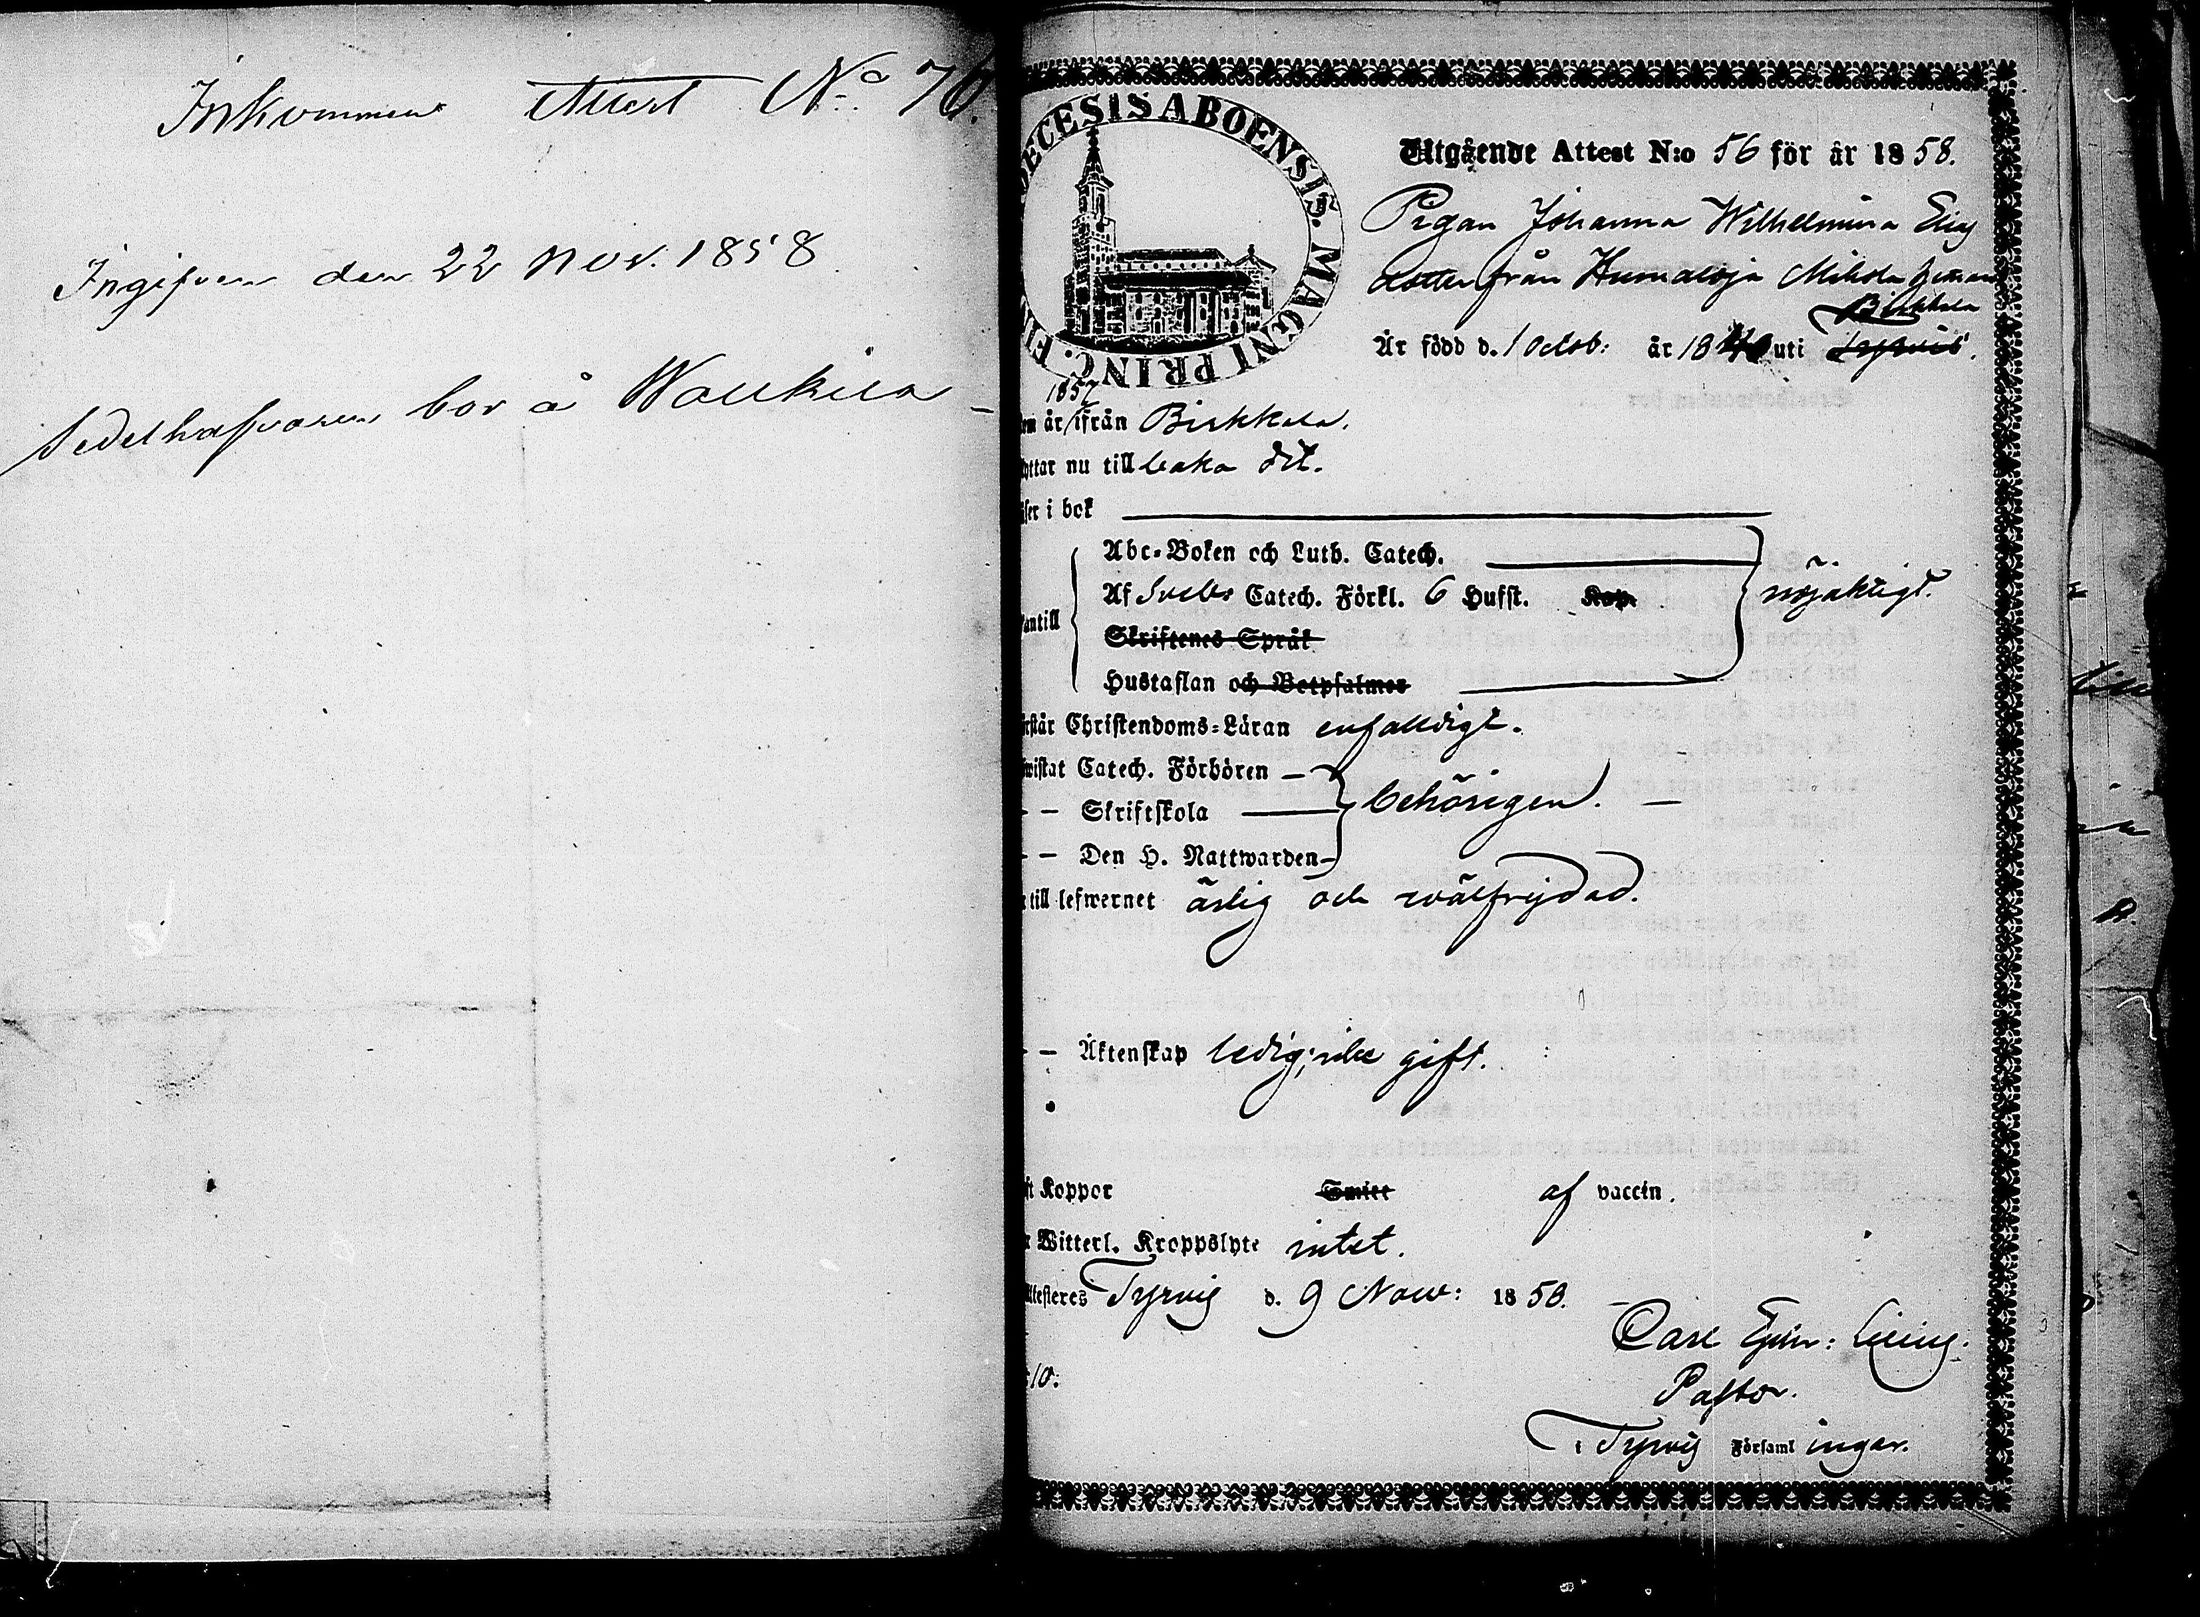 Inkommen Attest No 76.
Ingifven den 22 Nov. 1858.
Sedelhafvaren bor å Waukila –
ECESIS ABOENSIS. MAGNI PRINC. FI
Utgående Attest N:o 56 för år 1858.
Pigan Johanna Wilhelmina Eriks
dotter från Humaloja Mikola hemman
Birkkala
Är född d. 1 Octob: år 1840 uti Tyrvis.
1857
em år ifrån Birkkala.
yttar nu till baka dit.
äser i bok
Abc-Boken och Luth. Catech.
Af Svebs Catech. Förkl. 6 Hufst. Kap. nöjaktigt.
antill
Skriftenes Språk
Hustaflan och Botpsalmer
rstår Christendoms-Läran enfaldigt.
wistat Catech. Förhören –
– – Skriftskola behörigen. –
– – Den H. Nattwarden –
till lefwernet ärlig och wälfrejdad.
– – Äktenskap ledig, icke gift.
ft Koppor Smitt af vaccin.
r Witterl. Kroppslyte intet.
Attesteres Tyrvis d. 9 Now: 1858.
Carl
10:
Pastor.
i Tyrvis Församlingar.